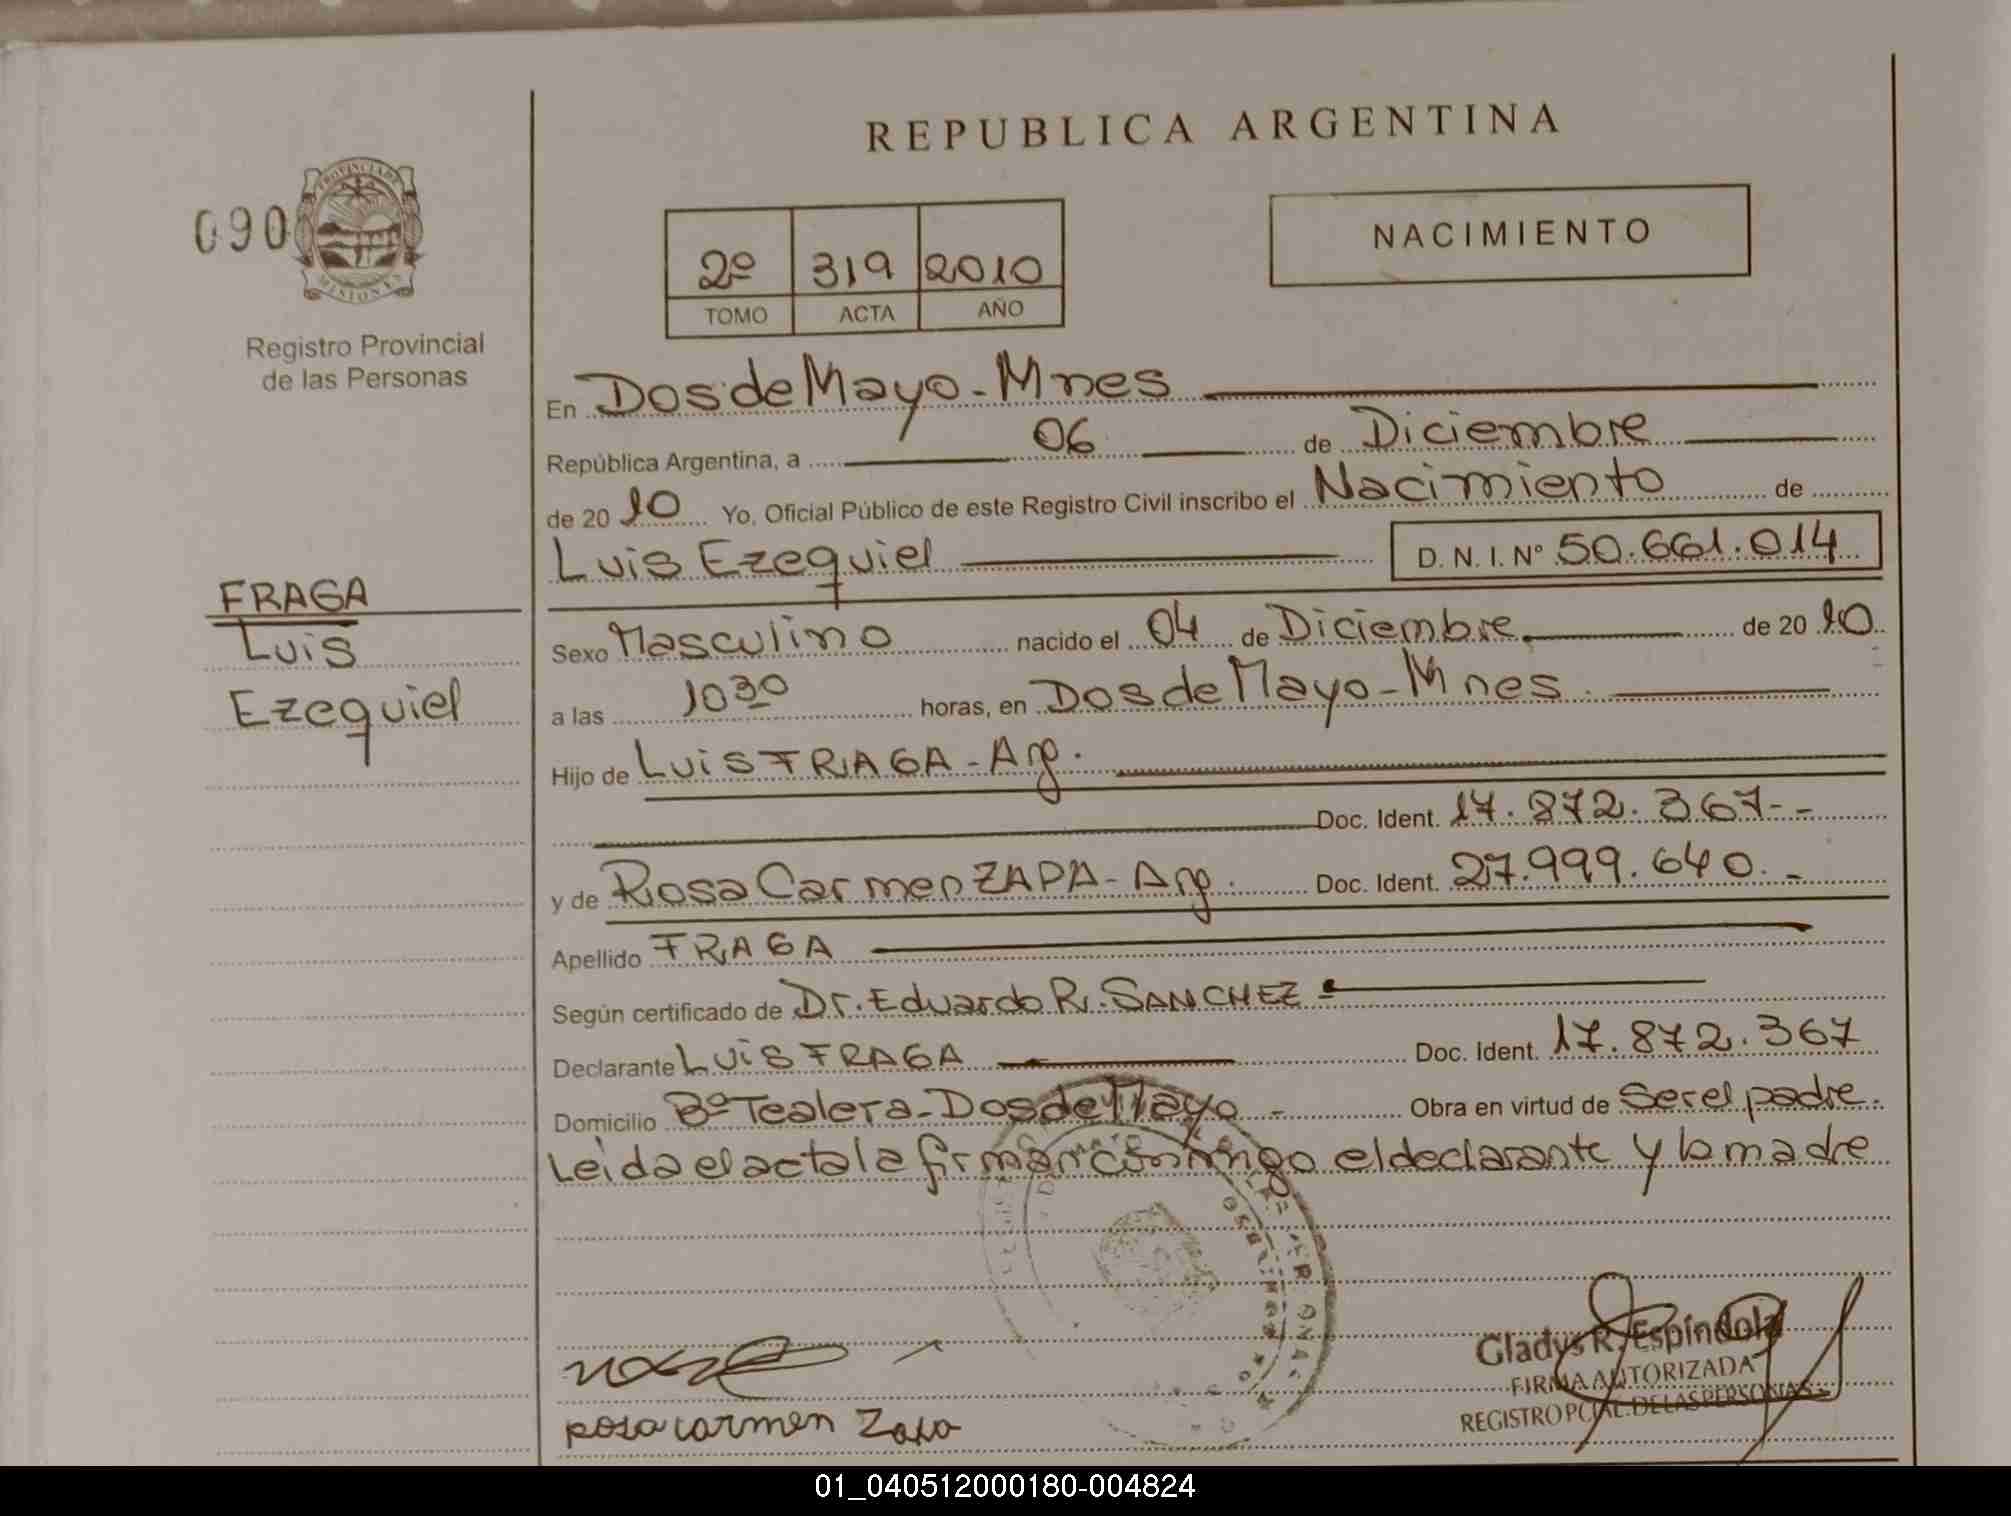 REPUBLICA ARGENTINA
090
PROVINCIA DE
MISIONES
Registro Provincial
de las Personas
2º 319 2010
TOMO ACTA AÑO
NACIMIENTO
En Dos de Mayo - Mnes
República Argentina, a 06 de Diciembre
de 2010 Yo, Oficial Público de este Registro Civil inscribo el Nacimiento de
Luis Ezequiel D. N. I. Nº 50.661.014
FRAGA
Luis
Ezequiel
Sexo Masculino nacido el 04 de Diciembre de 2010
a las 10 30 horas, en Dos de Mayo - Mnes
Hijo de Luis FRAGA - Arg.
Doc. Ident. 17.872.367--
y de Rosa Carmen ZAPA - Arg. Doc. Ident. 27.999.640.-
Apellido FRAGA
Según certificado de Dr. Eduardo R. SANCHEZ
Declarante Luis FRAGA Doc. Ident. 17.872.367
Domicilio Bº Tealera - Dos de Mayo - Obra en virtud de Ser el padre.
Leida el acta la firman conmigo el declarante y la madre
Gladys R. Espíndola
FIRMA AUTORIZADA
REGISTRO PCIAL. DE LAS PERSONAS
rosa carmen Zapa
01_040512000180-004824